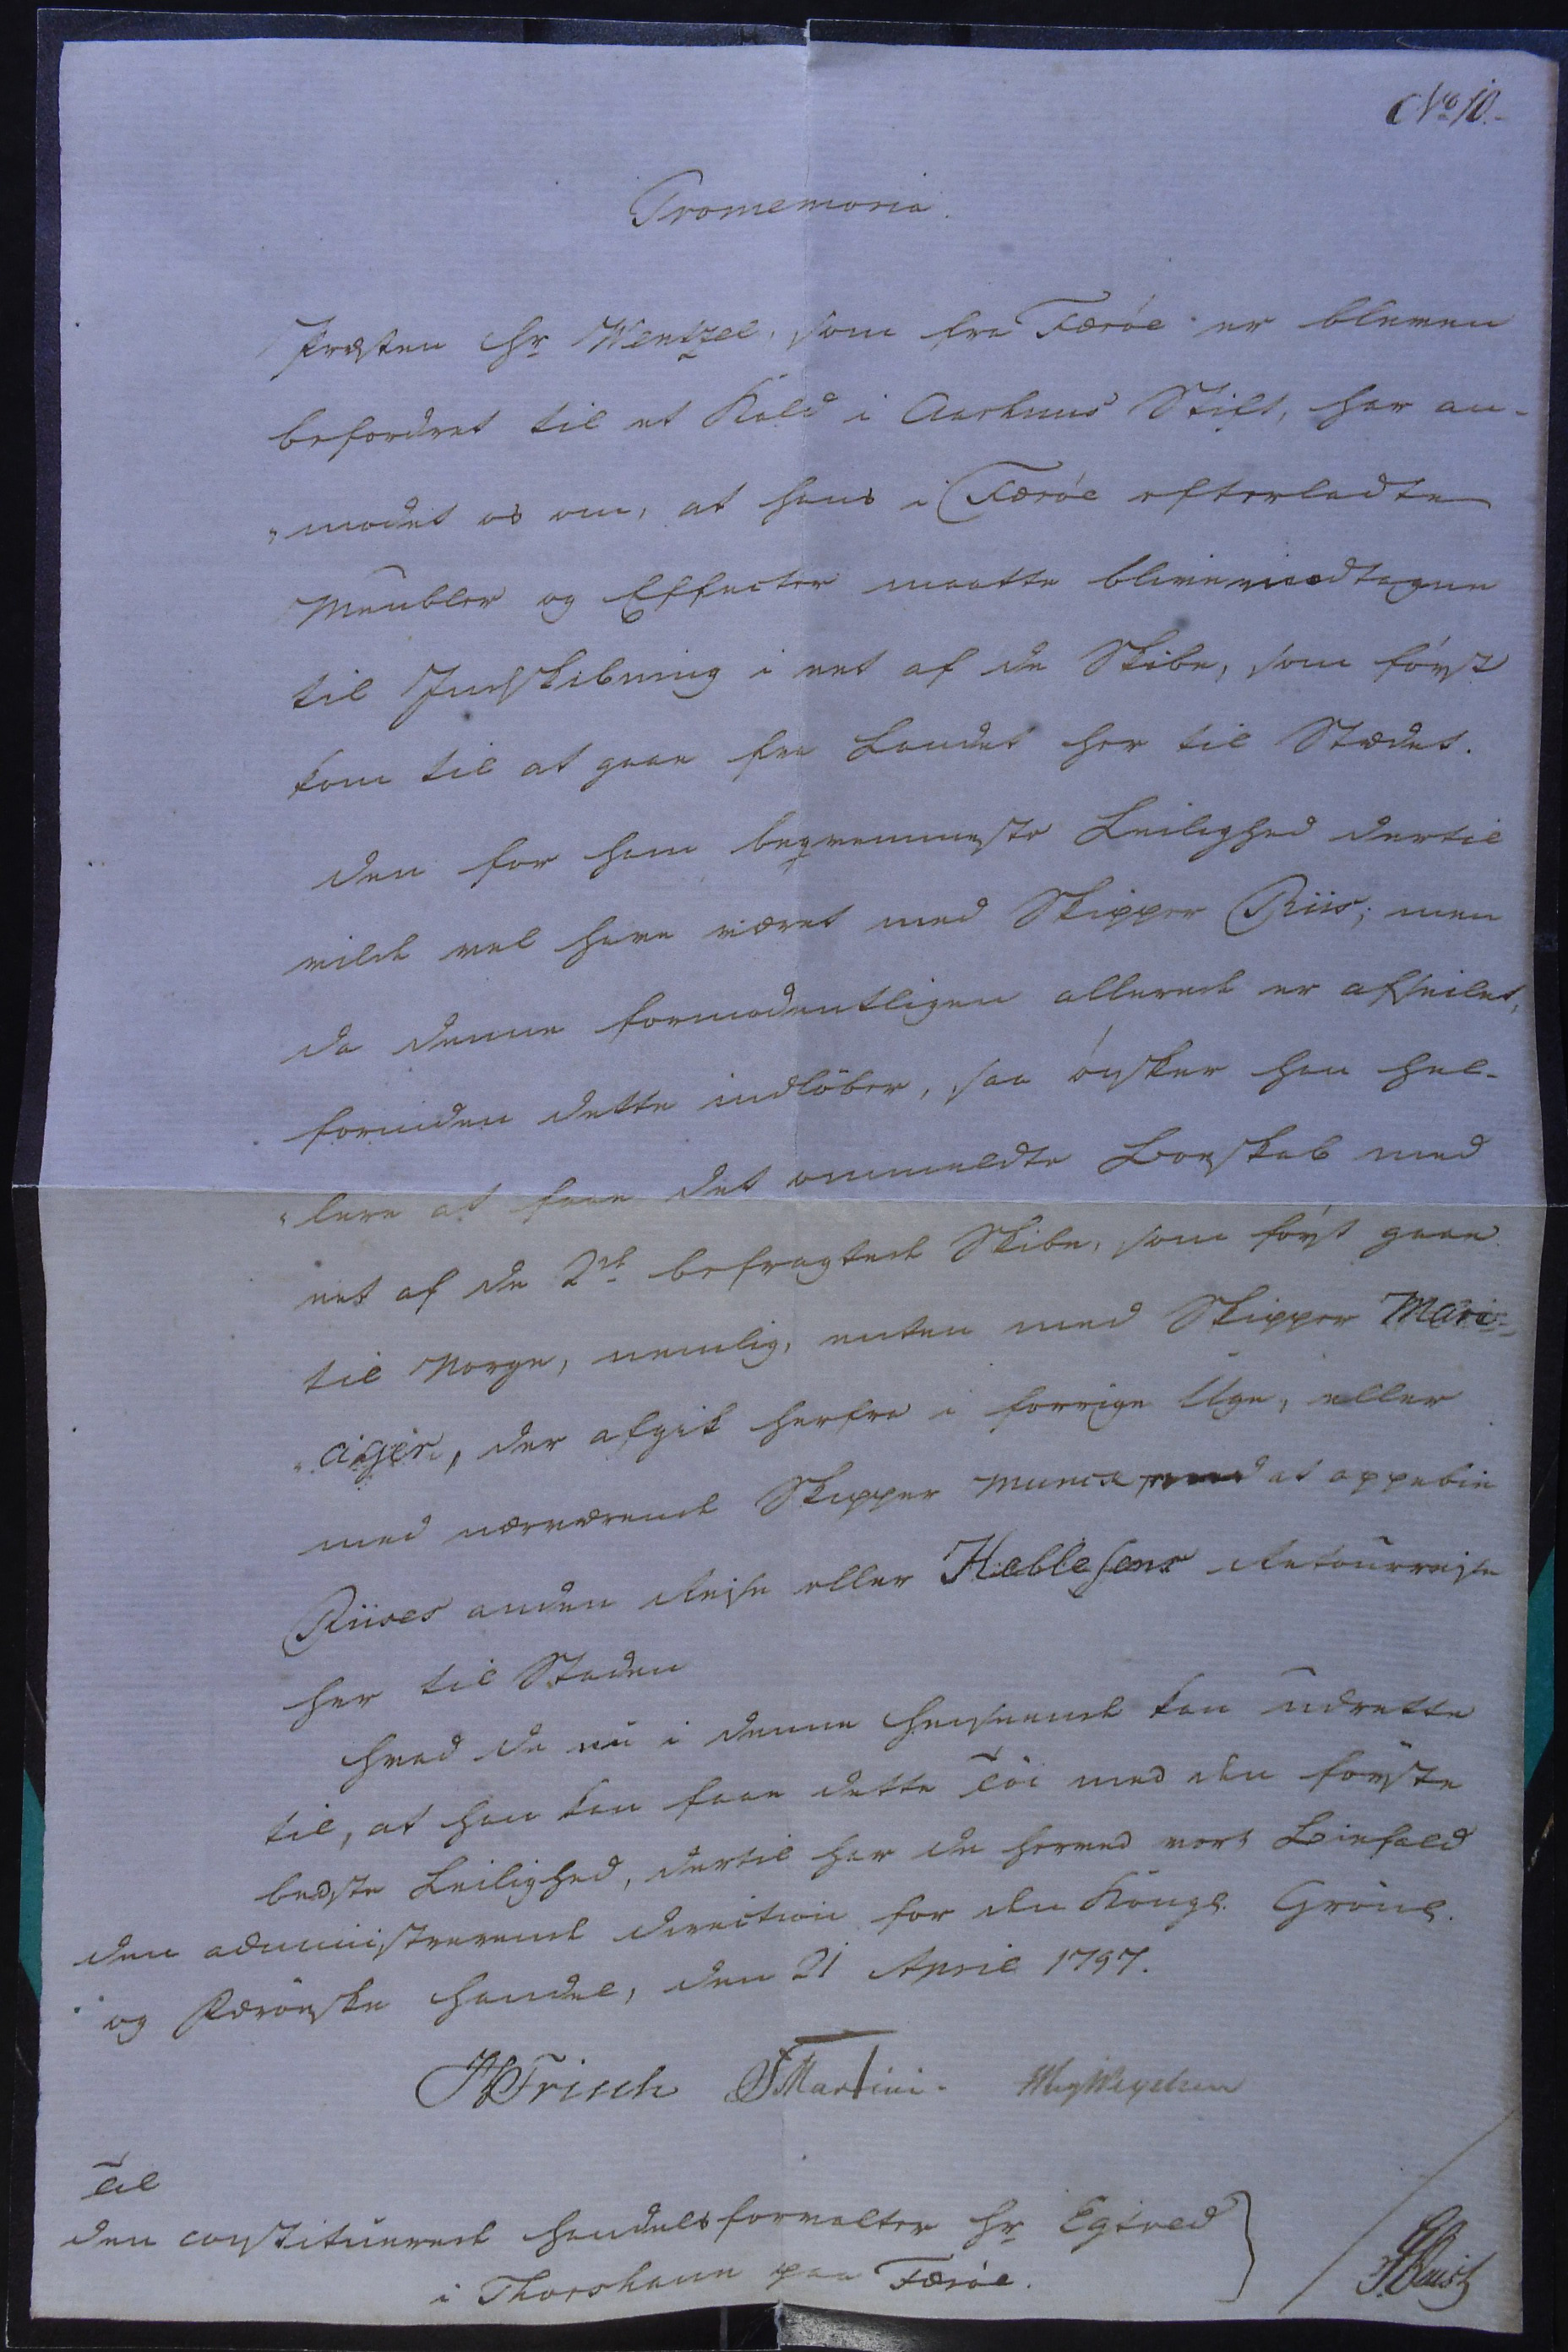 No 10.
Promemoria.
Præsten Hr Wentzel, som fra Færöe er bleven
befordret til et Kald i Aarhuus Stift, har an-
„modet os om, at hans i Færöe efterladte
Meubler og Effecter maatte blive modtagne
til Indskibning i eet af de Skibe, som först
kom til at gaae fra Landet her til Stædet.
Den for ham beqvemmeste Leilighed dertil
vilde vel have været med Skipper Riis; men
da denne formodentligen allerede er afseilet,
forinden dette indlöber, saa önsker han hel-
„lere at faae det ommeldte Boeskab med
eet af de 2de befragtede Skibe, som först gaae
til Norge, nemlig, enten med Skipper Mari-
„ager, der afgik herfra i forrige Uge, eller
med nærværende Skipper Munck, end at oppebie
Riises anden Reise eller Hebbelsens Retourreise
her til Staden
Hvad De nu i denne Henseende kan udrette
til, at han kan faae dette Töi med den förste
bedste Leilighed, dertil har De herved vort Biefald
Den administrerende Direction for den Kongl. Grönl.
og Færöeske Handel, den 21 April 1797.
Frisch Martini.
Til
den constituerede Handelsforvalter Hr Egtved
i Thorshavn paa Færöe.